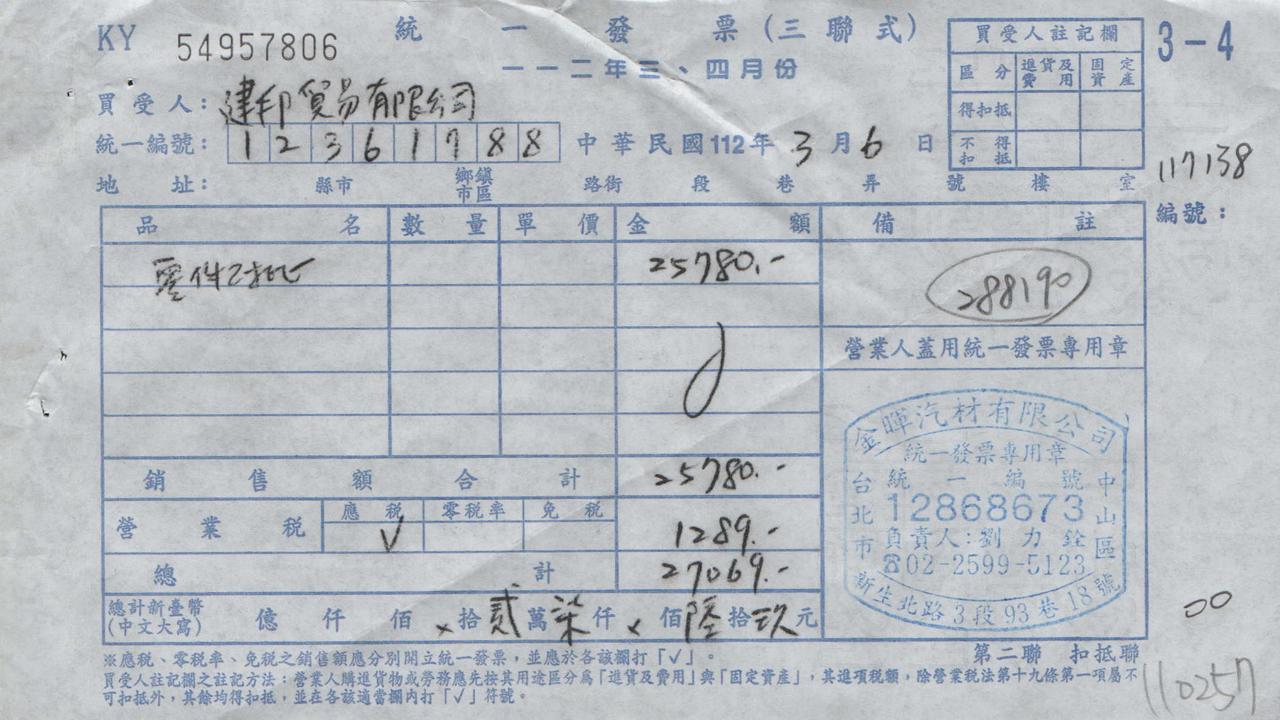 KY 54957806
統一發票(三聯式)
一一二年三、四月份
3-4
買受人註記欄
區分 進貨及費用 固定資產
得扣抵
不得扣抵
買受人：建邦貿易有限公司
統一編號：12361788
中華民國112年3月6日
117138
地址： 縣市 鄉鎮市區 路街 段 巷 弄 號 樓 室
編號：
品名 數量 單價 金額 備註
零件 25780.-
288190
營業人蓋用統一發票專用章
銷售額合計 25780.-
營業稅 應稅 零稅率 免稅
√ 1289.-
總計 27069.-
總計新臺幣
(中文大寫)
億 仟 佰 × 拾 貳 萬 柒 仟 × 佰 陸 拾 玖 元
金暉汽材有限公司
統一發票專用章
統一編號
12868673
負責人：劉力銓
☎02-2599-5123
台北市 中山區
新生北路3段93巷18號
00
第二聯 扣抵聯
※應稅、零稅率、免稅之銷售額應分別開立統一發票，並應於各該欄打「√」。
買受人註記欄之註記方法：營業人購進貨物或勞務應先按其用途區分為「進貨及費用」與「固定資產」，其進項稅額，除營業稅法第十九條第一項屬不
可扣抵外，其餘均得扣抵，並在各該適當欄內打「√」符號。
110257